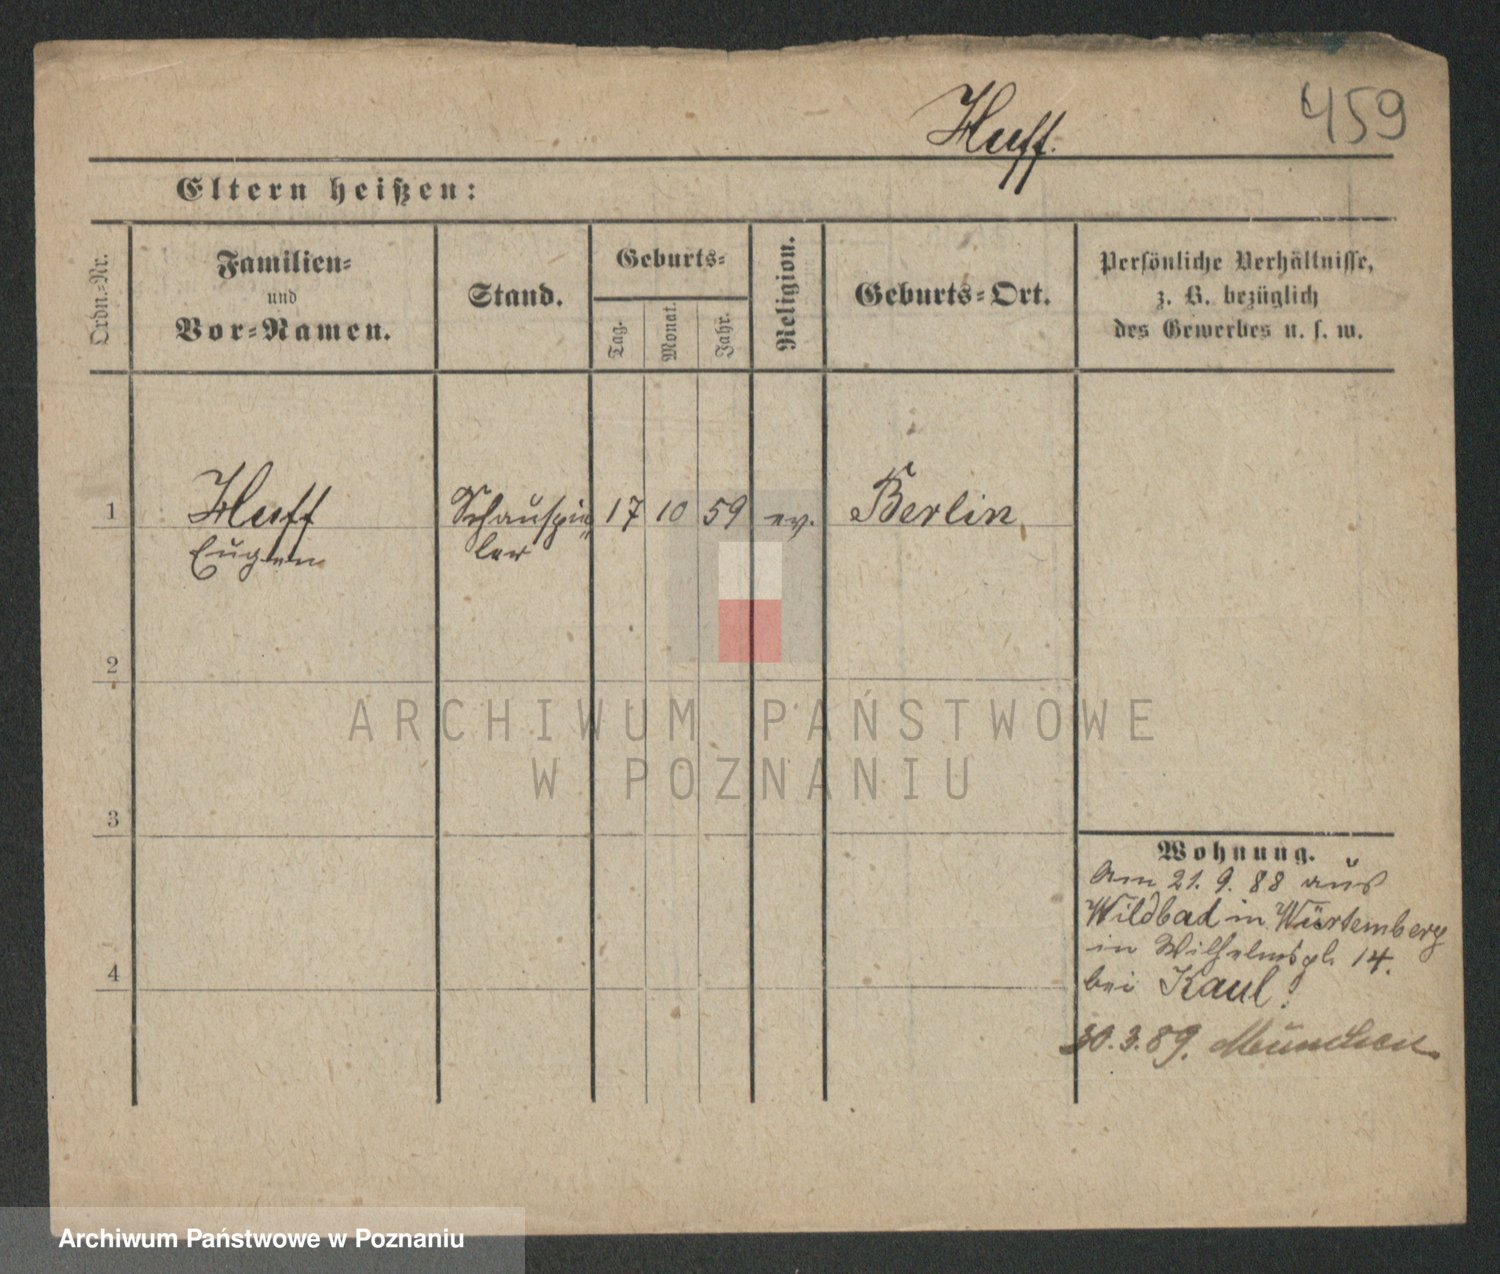 Huff.
459
Eltern heißen:
Ordn.-Nr.
Familien-
und
Vor-Namen.
Stand.
Geburts-
Tag.
Monat.
Jahr.
Religion.
Geburts-Ort.
Persönliche Verhältnisse,
z. B. bezüglich
des Gewerbes u. s. w.
1 Huff Schauspie= 17 10 59 ev. Berlin
Eugen ler
2
3
4
Wohnung.
Am 21. 9. 88 aus
Wildbad in Würtemberg
in Wilhelmspl. 14.
bei Kaul.
30.3.89. München
ARCHIWUM PAŃSTWOWE
W POZNANIU
Archiwum Państwowe w Poznaniu